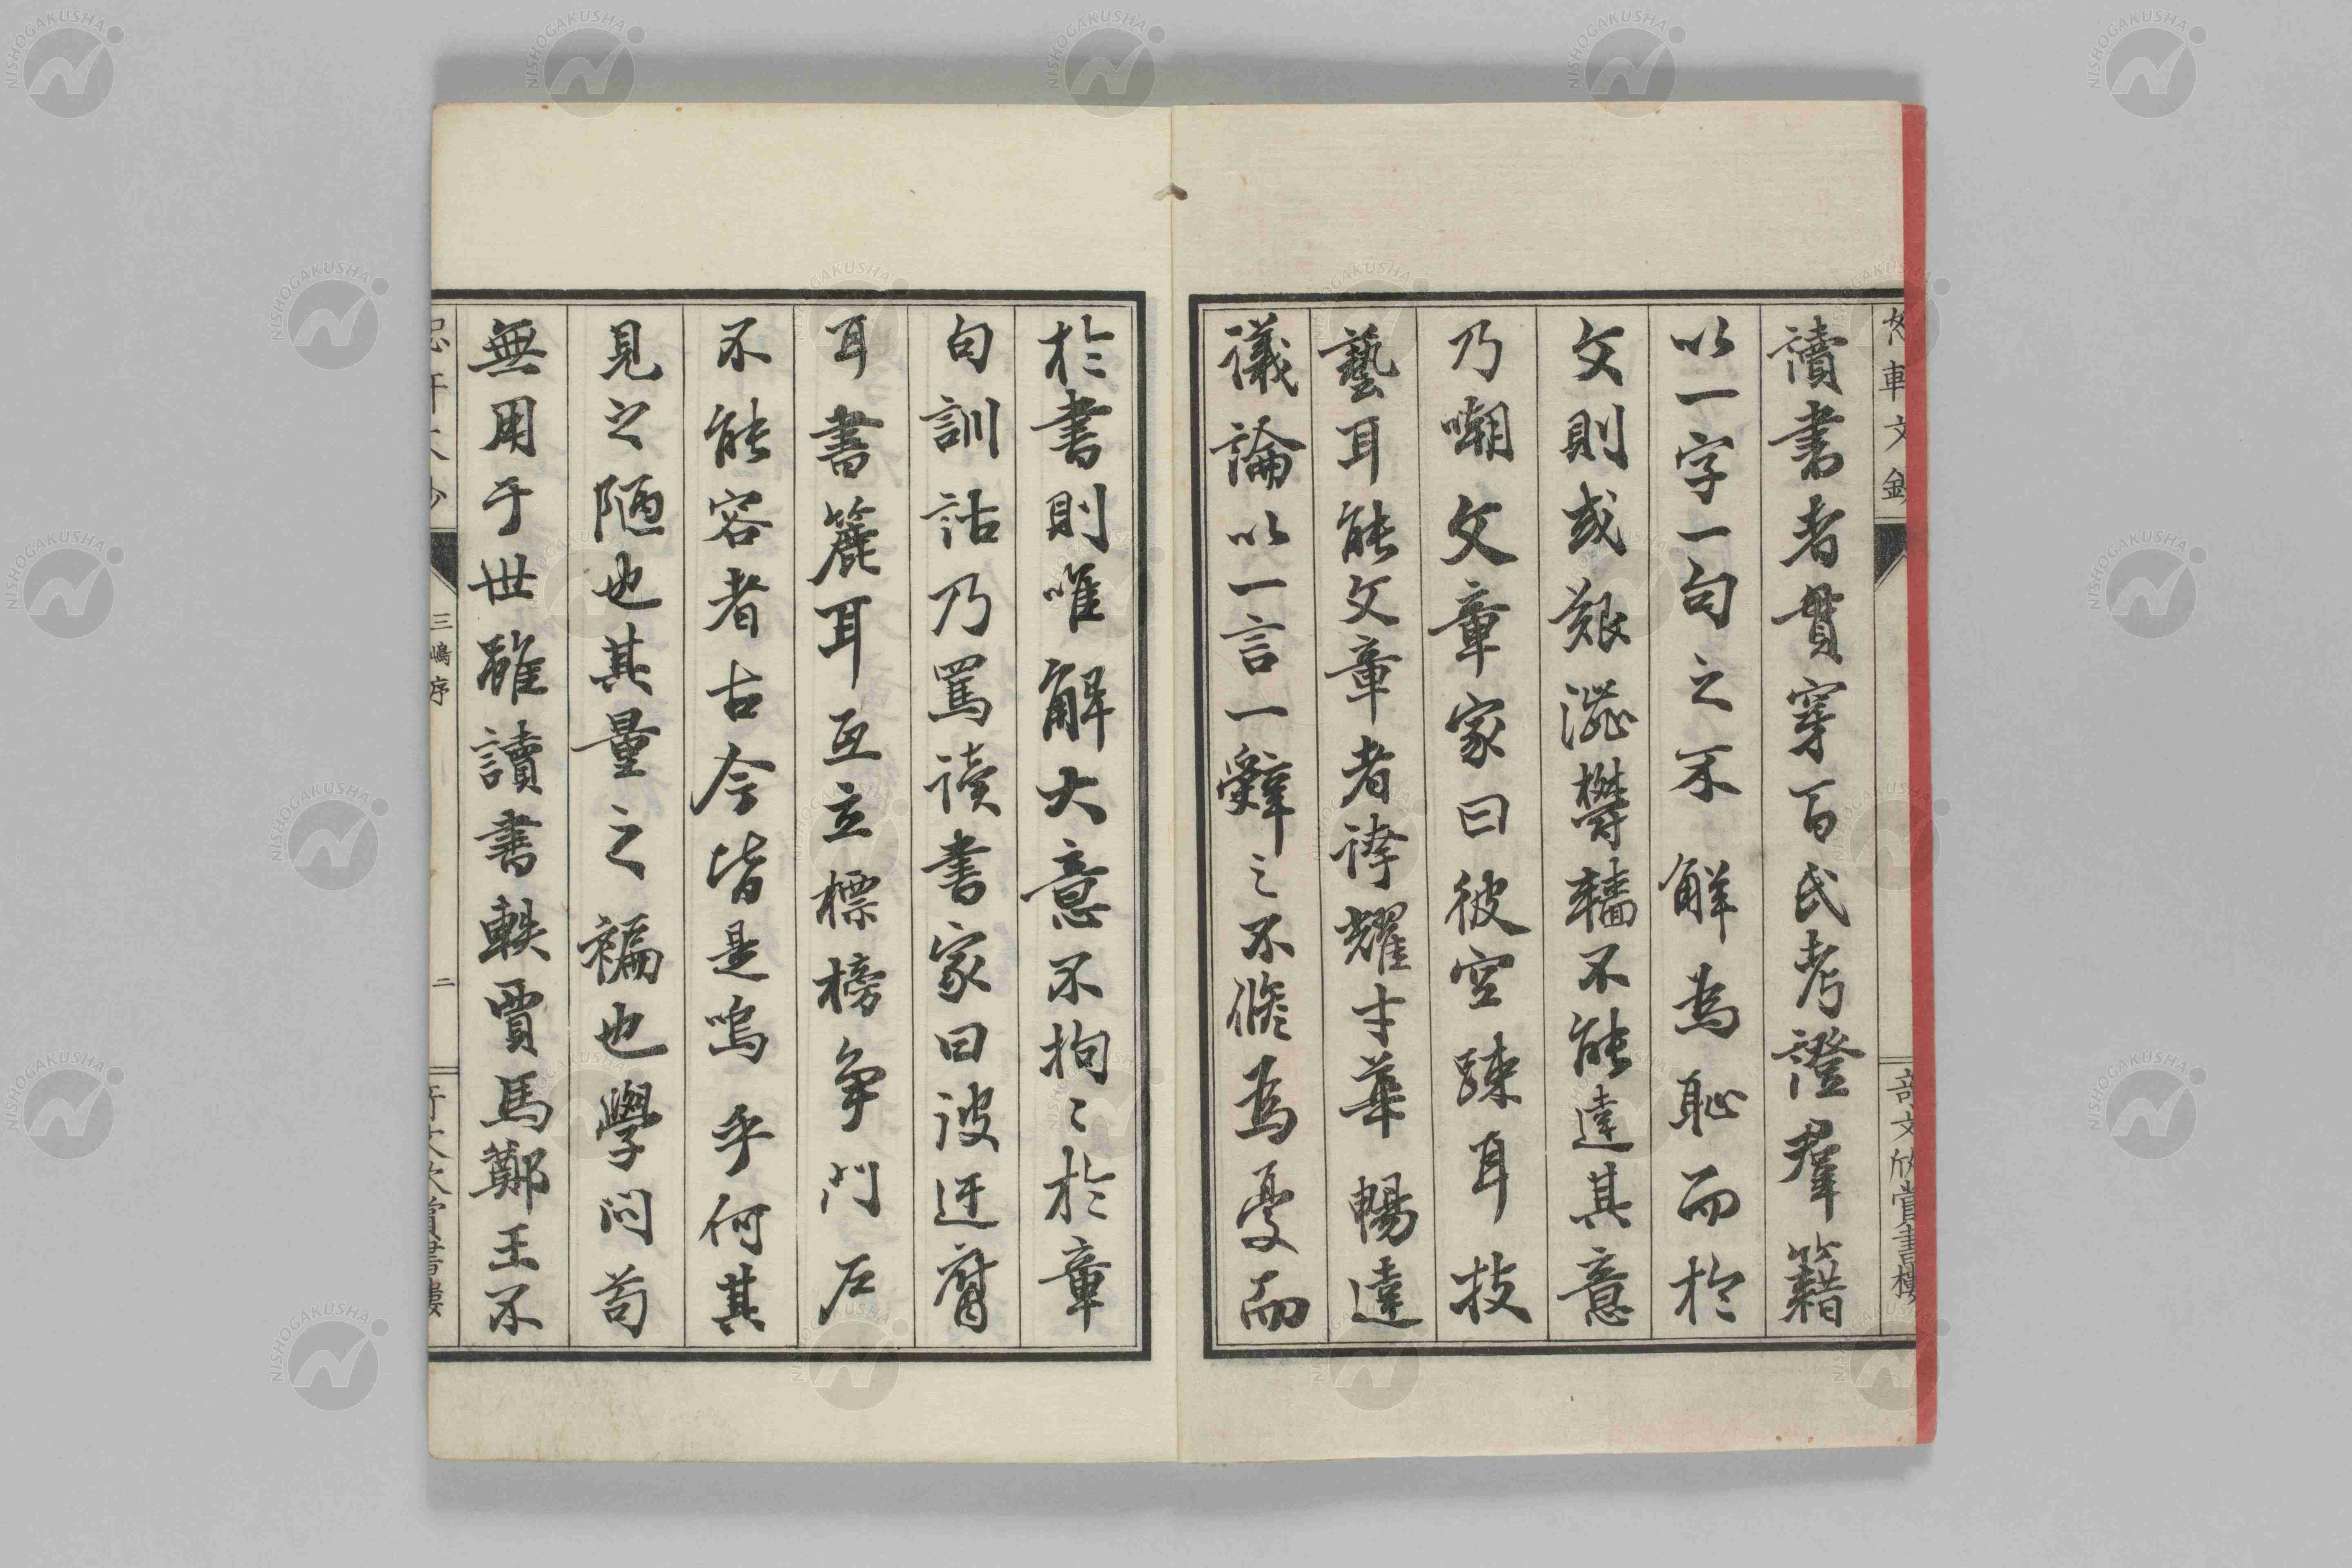 讀書者貫穿百氏考證羣籍
以一字一句之不解為恥而於
文則或艱澁欝轖不能達其意
乃嘲文章家曰彼空踈耳技
藝耳能文章者誇耀才華暢達
議論以一言一辭之不儵為憂而
於書則唯解大意不拘〻於章
句訓詁乃罵讀書家曰彼迂腐
耳書簏耳互立標榜爭門戶
不能容者古今皆是嗚乎何其
見之陋也其量之褊也學問苟
無用于世雖讀書軼賈馬鄭王不
三嶋序
二
NISHOGAKUSHA